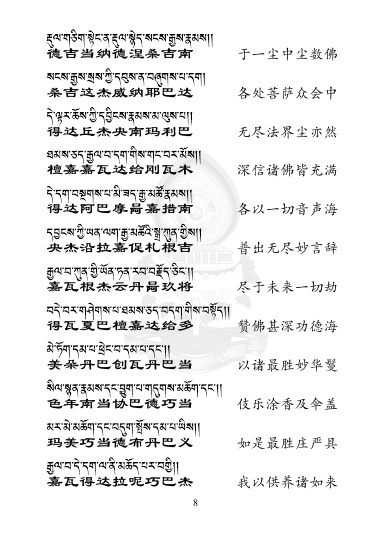 རྡུལ་གཅིག་སྟེང་ན་རྡུལ་སྙེད་སངས་རྒྱས་རྣམས།།
德吉当纳德涅桑吉南 于一尘中尘数佛
སངས་རྒྱས་སྲས་ཀྱི་དབུས་ན་བཞུགས་པ་དག།
桑吉这杰威纳耶巴达 各处菩萨众会中
དེ་ལྟར་ཆོས་ཀྱི་དབྱིངས་རྣམས་མ་ལུས་པ།།
得达丘杰央南玛利巴 无尽法界尘亦然
ཐམས་ཅད་རྒྱལ་བ་དག་གིས་གང་བར་མོས།།
檀嘉嘉瓦达给刚瓦木 深信诸佛皆充满
དེ་དག་བསྔགས་པ་མི་ཟད་རྒྱ་མཚོ་རྣམས།།
得达阿巴摩曷嘉措南 各以一切音声海
དབྱངས་ཀྱི་ཡན་ལག་རྒྱ་མཚོའི་སྒྲ་ཀུན་གྱིས།།
央杰沿拉嘉促札根吉 普出无尽妙言辞
རྒྱལ་བ་ཀུན་གྱི་ཡོན་ཏན་རབ་བརྗོད་ཅིང་།།
嘉瓦根杰云丹曷玖将 尽于未来一切劫
བདེ་བར་གཤེགས་པ་ཐམས་ཅད་བདག་གིས་བསྟོད།།
得瓦夏巴檀嘉达给多 赞佛甚深功德海
མེ་ཏོག་དམ་པ་ཕྲེང་བ་དམ་པ་དང་།།
美朵丹巴创瓦丹巴当 以诸最胜妙华鬘
སིལ་སྙན་རྣམས་དང་བྱུག་པ་གདུགས་མཆོག་དང་།།
色年南当协巴德巧当 伎乐涂香及伞盖
མར་མེ་མཆོག་དང་བདུག་སྤོས་དམ་པ་ཡིས།།
玛美巧当德布丹巴义 如是最胜庄严具
རྒྱལ་བ་དེ་དག་ལ་ནི་མཆོད་པར་བགྱི།།
嘉瓦得达拉呢巧巴杰 我以供养诸如来
8